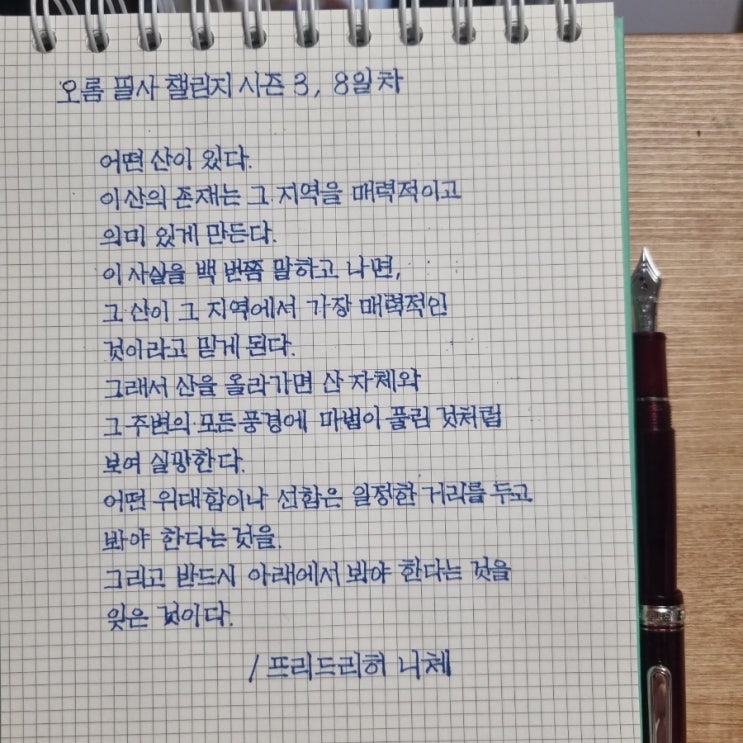 오롬 필사 챌린지 시즌 3, 8일차
어떤 산이 있다.
이 산의 존재는 그 지역을 매력적이고
의미 있게 만든다.
이 사실을 백 번쯤 말하고 나면,
그 산이 그 지역에서 가장 매력적인
것이라고 믿게 된다.
그래서 산을 올라가면 산 자체와
그 주변의 모든 풍경에 마법이 풀린 것처럼
보여 실망한다.
어떤 위대함이나 선함은 일정한 거리를 두고
봐야 한다는 것을.
그리고 반드시 아래에서 봐야 한다는 것을
잊은 것이다.
/ 프리드리히 니체